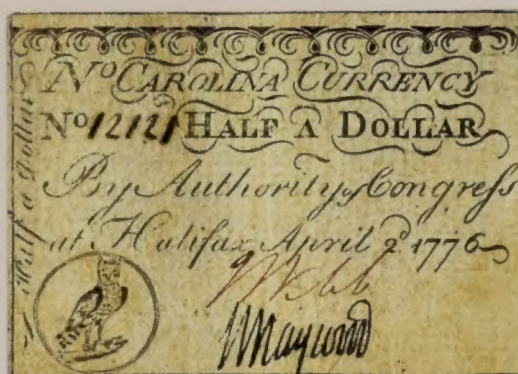 No CAROLINA CURRENCY
No 12121 HALF A DOLLAR
By Authority of Congress
at Halifax April 2d 1776
Half a Dollar
J Webb
W Haywood